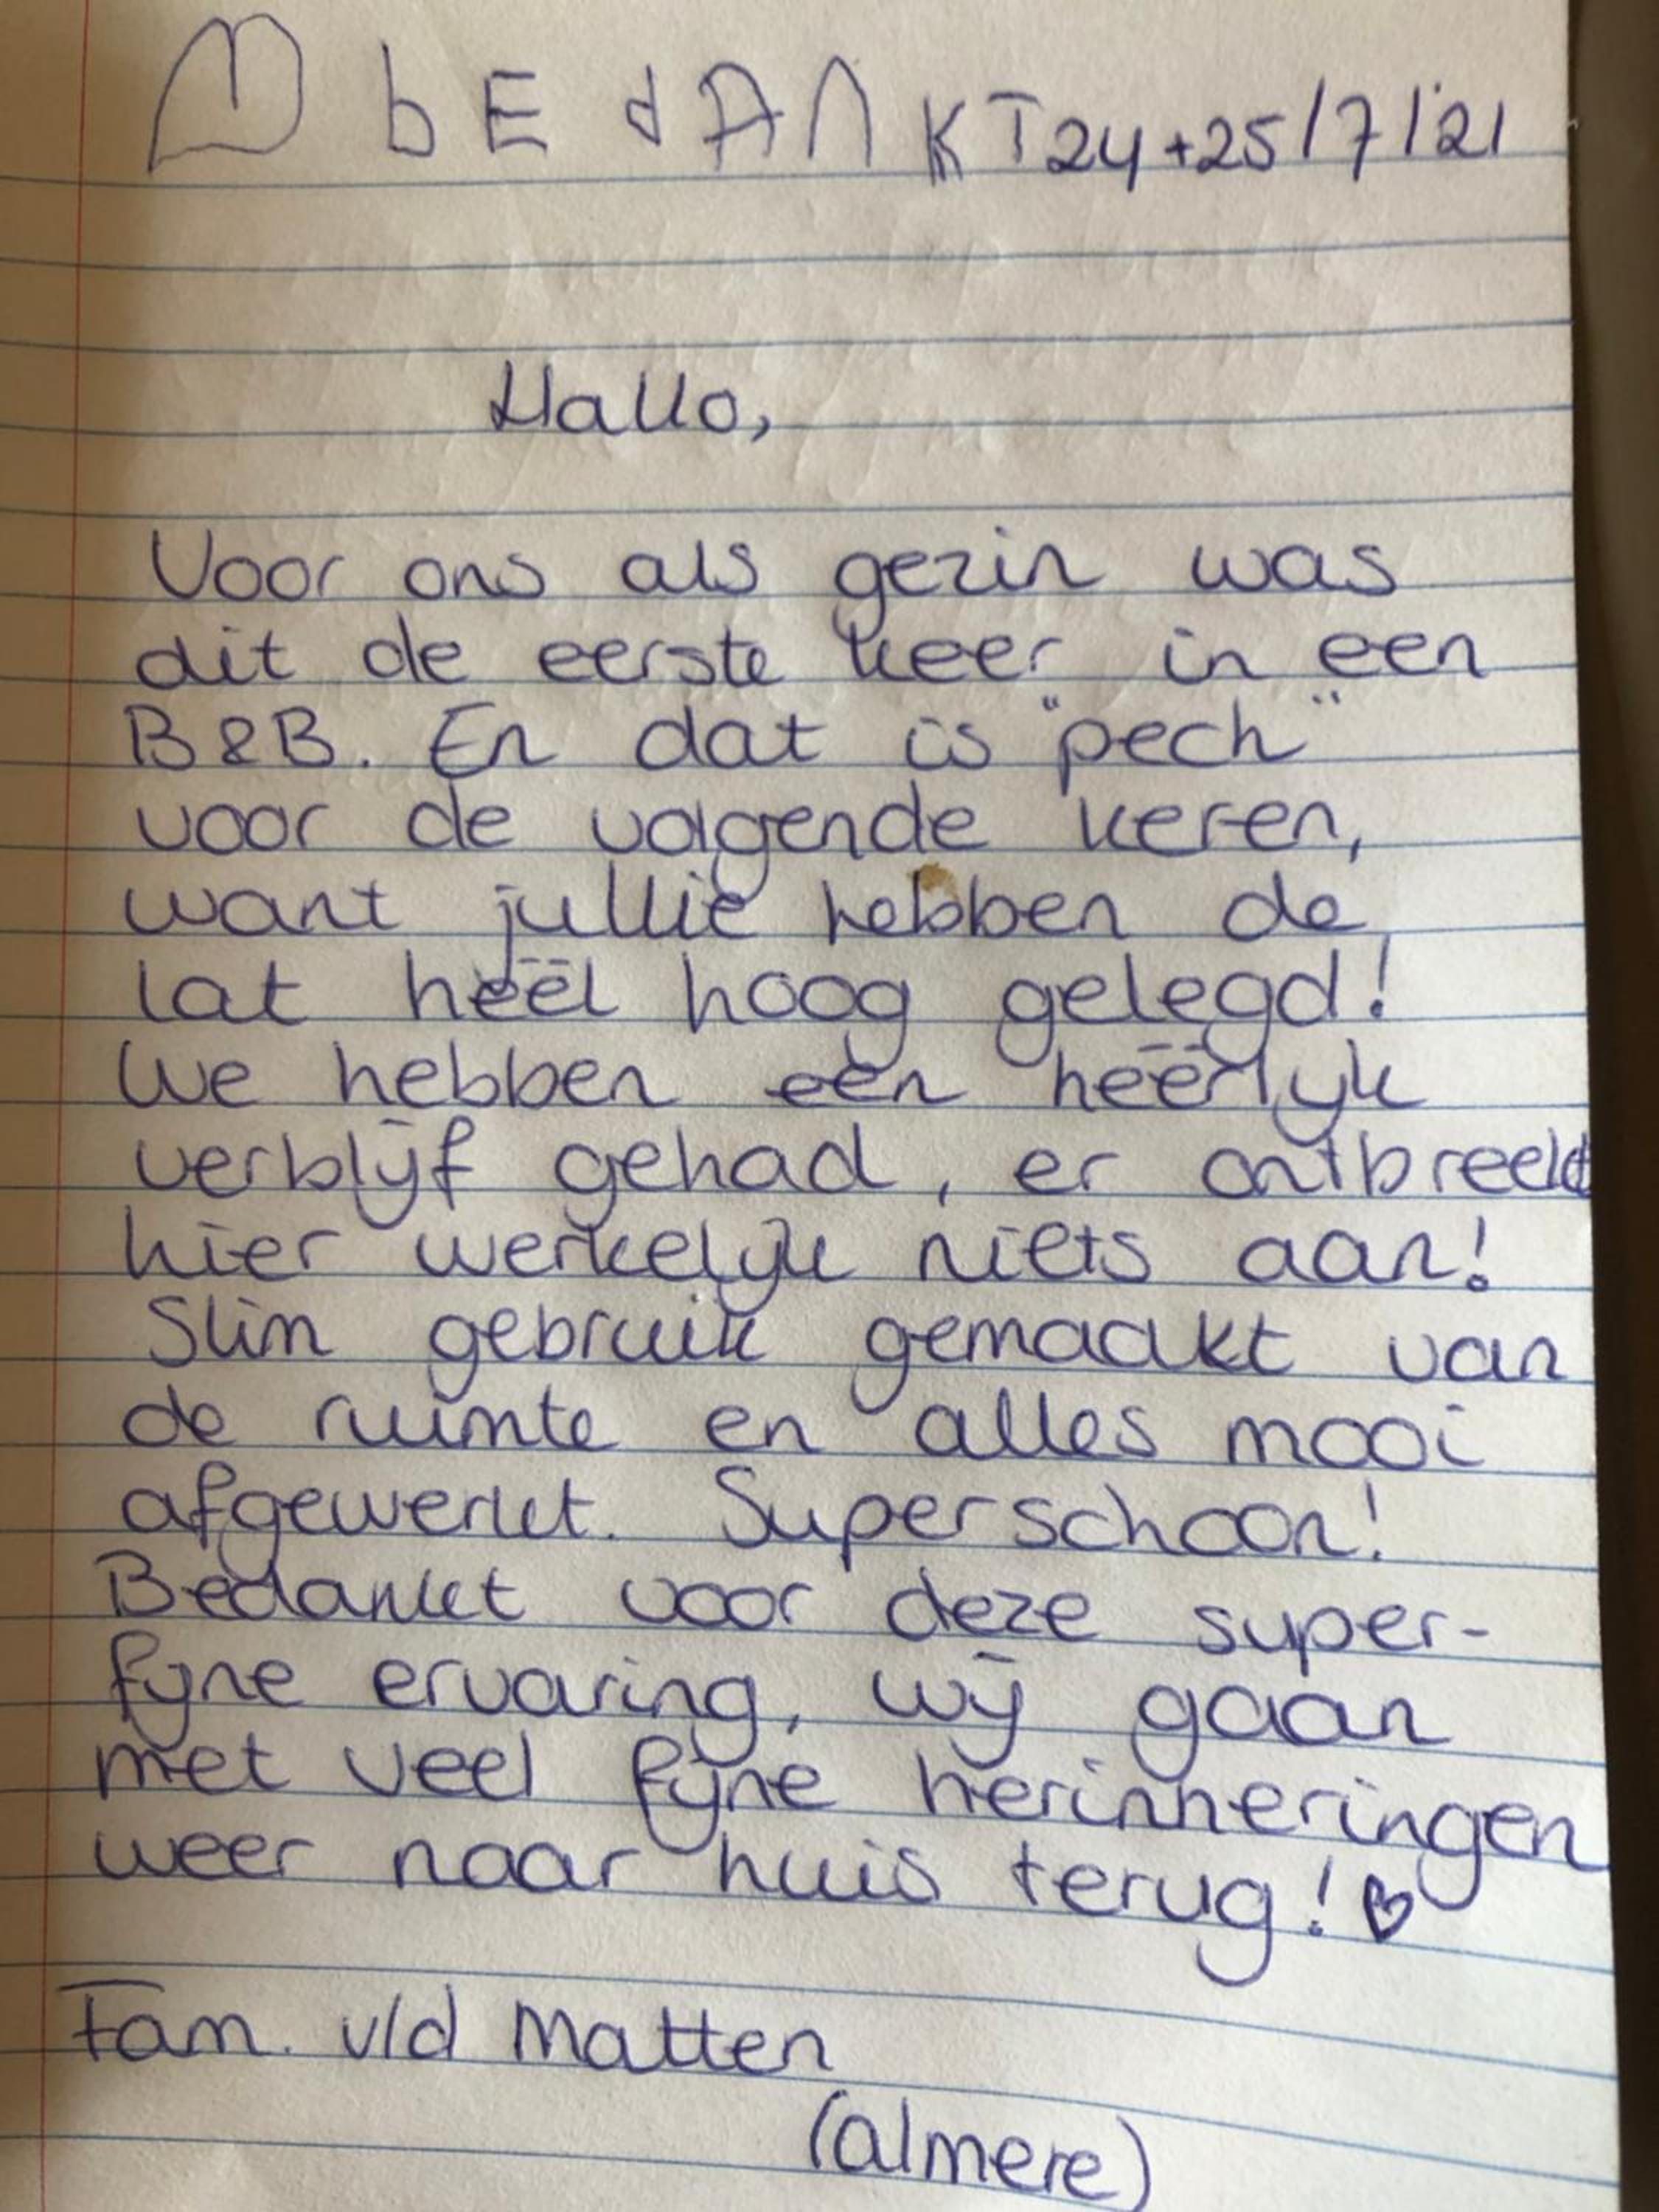 bEdANKT 24+25/7/'21
Hallo,
Voor ons als gezin was
dit de eerste keer in een
B&B. En dat is "pech"
voor de volgende keren,
want jullie hebben de
lat heël hoog gelegd!
We hebben een heerlijk
verblijf gehad, er ontbreekt
hier werkelijk niets aan!
Slim gebruik gemaakt van
de ruimte en alles mooi
afgewerkt. Superschoon!
Bedankt voor deze super-
fijne ervaring, wij gaan
met veel fijne herinneringen
weer naar huis terug!
Fam. v/d Matten
(almere)